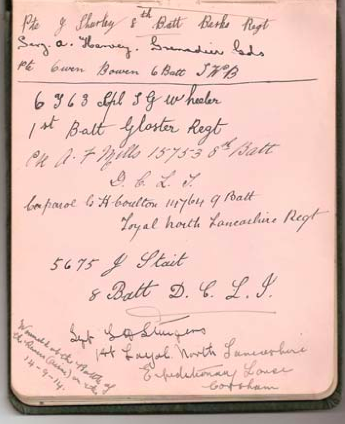 Pte J Sharley 8th Batt Berks Regt
Serg. A. Harvey. Grenadier Gds
Pte Owen Bowen 6 Batt SWB
6363 Cpl J G Wheeler
1st Batt Gloster Regt
Pte A. F Mills 15753 8th Batt
D. C. L. I.
Corporal G H Coulton 9 Batt
Loyal North Lancashire Regt
5675 J Stait
8 Batt D. C. L. I.
Sturgess
1st Loyal North Lancashire
Expeditionary Force
Corsham
Wounded at the Battle of
the River (Aisne) on the
14-9-14.